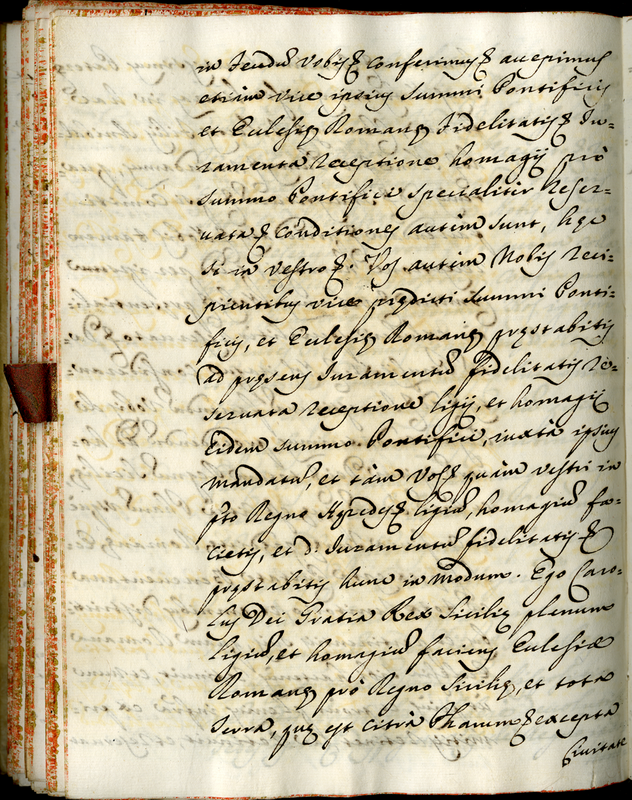 in feudũ Vobis & conferimus & accepimus
etiam vice ipsius Summi Pontificis
et Ecclesiæ Romanæ fidelitatis & Ju-
ramenta receptione homagij pro
summo Pontifice specialiter reser-
uata & Conditiones autem sunt, hęc
Si in vestro &: Vos autem Nobis reci-
pientibus vice prędicti Summi Ponti-
ficis, et Ecclesię Romanę pręstabitis
ad pręsens Iuramentũ fidelitatis re-
seruata receptione ligij, et homagij
Eidem summo Pontifice, iuxta ipsius
mandatũ, et tàm Vos & quàm vestri in
pto Regno Hęredes & ligiũ, homagiũ fa-
cietis, et d. Iuramentũ fidelitatis &
pręstabitis hunc in modum. Ego Caro-
lus Dei Gratia Rex Sicilię plenum
ligiũ, et homagiũ faciens Ecclesiæ
Romanę pro Regno Sicilię, et tota
Terra, quę est citrà Pharum & excepta
Ciuitate